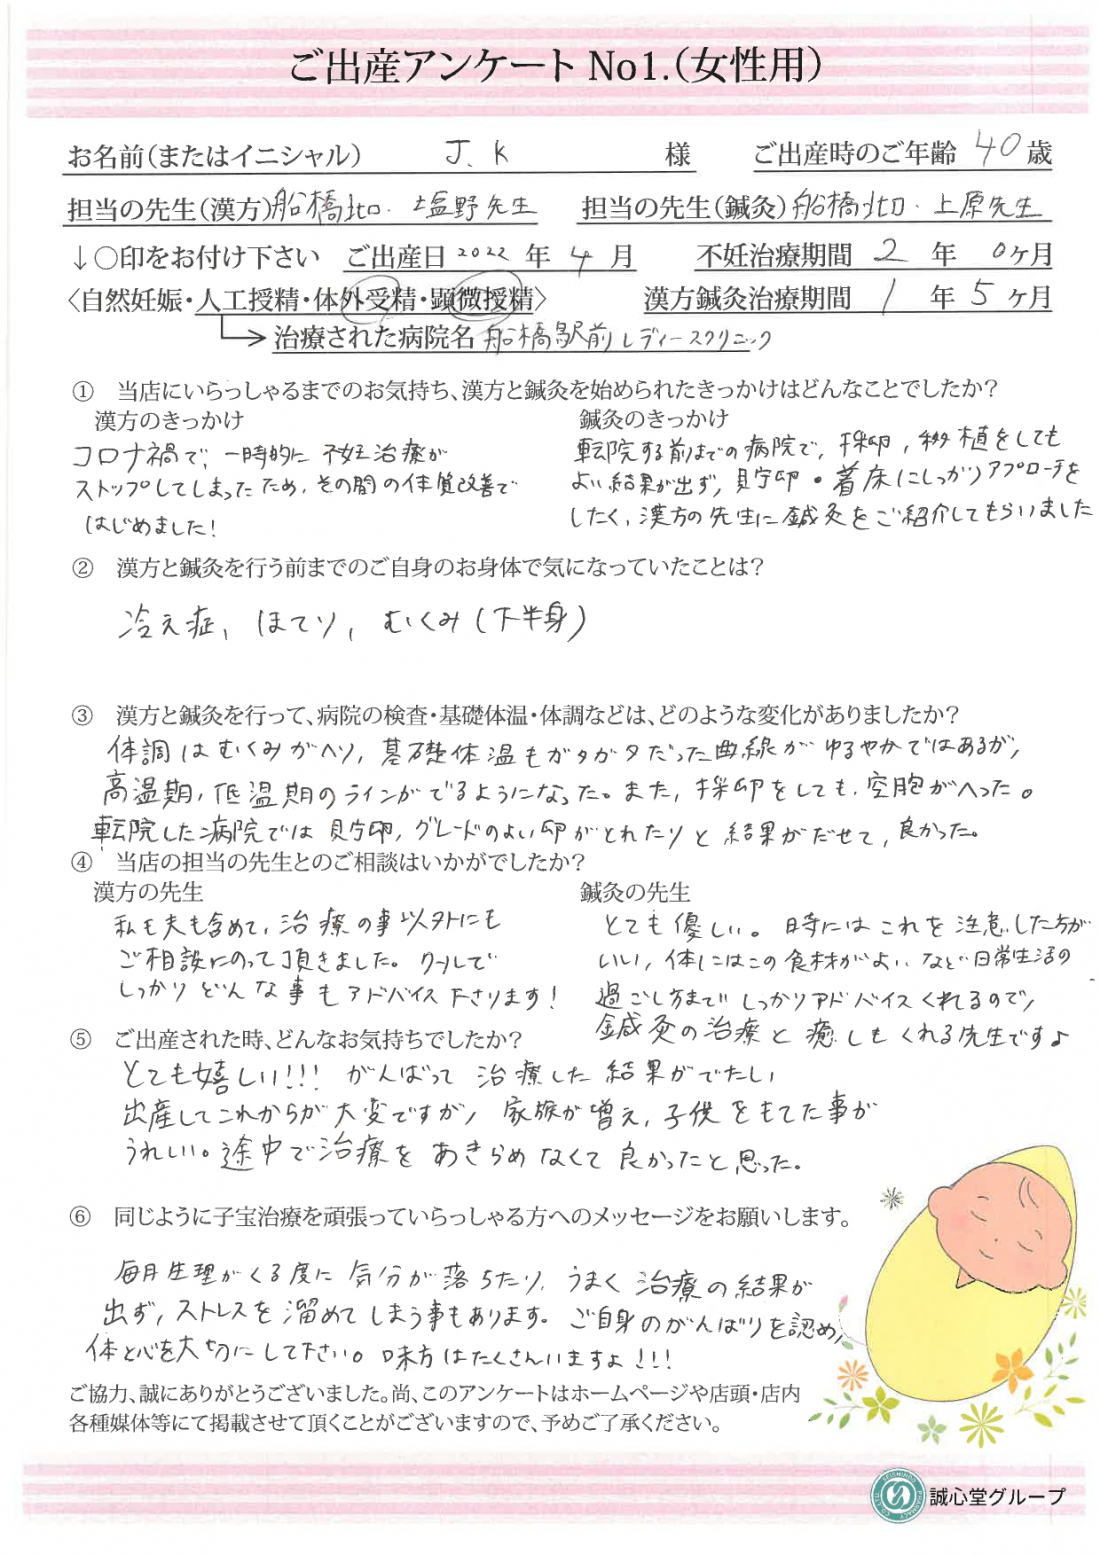 ご出産アンケート No1.(女性用)
お名前(またはイニシャル) J.K 様 ご出産時のご年齢 40 歳
担当の先生(漢方)船橋北口・塩野先生 担当の先生(鍼灸)船橋北口・上原先生
↓〇印をお付け下さい ご出産日 2022 年 4 月 不妊治療期間 2 年 0ヶ月
〈自然妊娠・人工授精・体外受精・顕微授精〉 漢方鍼灸治療期間 1 年 5 ヶ月
治療された病院名 船橋駅前レディースクリニック
① 当店にいらっしゃるまでのお気持ち、漢方と鍼灸を始められたきっかけはどんなことでしたか?
漢方のきっかけ
コロナ禍で、一時的に不妊治療が
ストップしてしまったため、その間の体質改善で
はじめました!
鍼灸のきっかけ
転院する前までの病院で、採卵、移植をしても
よい結果が出ず、貯卵・着床にしっかりアプローチを
したく、漢方の先生に鍼灸をご紹介してもらいました
② 漢方と鍼灸を行う前までのご自身のお身体で気になっていたことは?
冷え症、ほてり、むくみ(下半身)
③ 漢方と鍼灸を行って、病院の検査・基礎体温・体調などは、どのような変化がありましたか?
体調はむくみがへり、基礎体温もガタガタだった曲線がゆるやかではあるが、
高温期、低温期のラインがでるようになった。また、採卵をしても、空胞がへった。
転院した病院では貯卵、グレードのよい卵がとれたりと結果がだせて、良かった。
④ 当店の担当の先生とのご相談はいかがでしたか?
漢方の先生
私も夫も含めて、治療の事以外にも
ご相談にのって頂きました。クールで
しっかりどんな事もアドバイス下さります!
鍼灸の先生
とても優しい。時にはこれを注意した方が
いい、体にはこの食材がよいなど日常生活の
過ごし方までしっかりアドバイスくれるので、
鍼灸の治療と癒しもくれる先生ですよ
⑤ ご出産された時、どんなお気持ちでしたか?
とても嬉しい!!! がんばって治療した結果がでたし、
出産してこれからが大変ですが、家族が増え、子供をもてた事が
うれしい。途中で治療をあきらめなくて良かったと思った。
⑥ 同じように子宝治療を頑張っていらっしゃる方へのメッセージをお願いします。
毎月生理がくる度に気分が落ちたり、うまく治療の結果が
出ず、ストレスを溜めてしまう事もあります。ご自身のがんばりを認め、
体と心を大切にして下さい。味方はたくさんいますよ!!!
ご協力、誠にありがとうございました。尚、このアンケートはホームページや店頭・店内
各種媒体等にて掲載させて頂くことがございますので、予めご了承ください。
誠心堂グループ